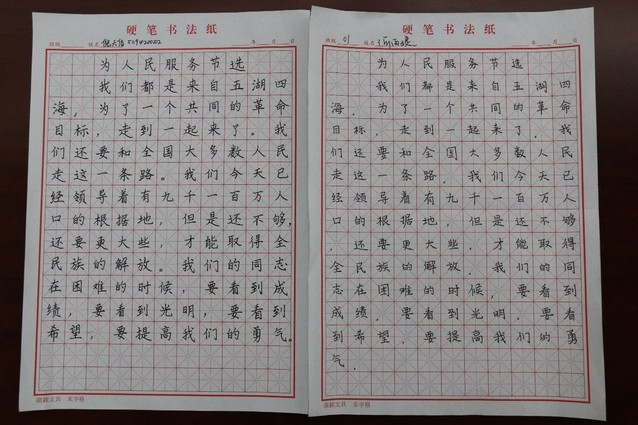 硬笔书法纸
班级 姓名 年 月 日
为人民服务节选
我们都是来自五湖四
海，为了一个共同的革命
目标，走到一起来了。我
们还要和全国大多数人民
走这一条路。我们今天已
经领导着有九千一百万人
口的根据地，但是还不够，
还要更大些，才能取得全
民族的解放。我们的同志
在困难的时候，要看到成
绩，要看到光明，要看到
希望，要提高我们的勇气。
米字格
硬笔书法纸
班级 01 姓名 年 月 日
为人民服务节选
我们都是来自五湖四
海，为了一个共同的革命
目标，走到一起来了，我
们还要和全国大多数人民
走这一条路。我们今天已
经领导着有九千一百万人
口的根据地，但是还不够
，还要更大些，才能取得
全民族的解放。我们的同
志在困难的时候，要看到
成绩，要看到光明，要看
到希望，要提高我们的勇
气。
米字格